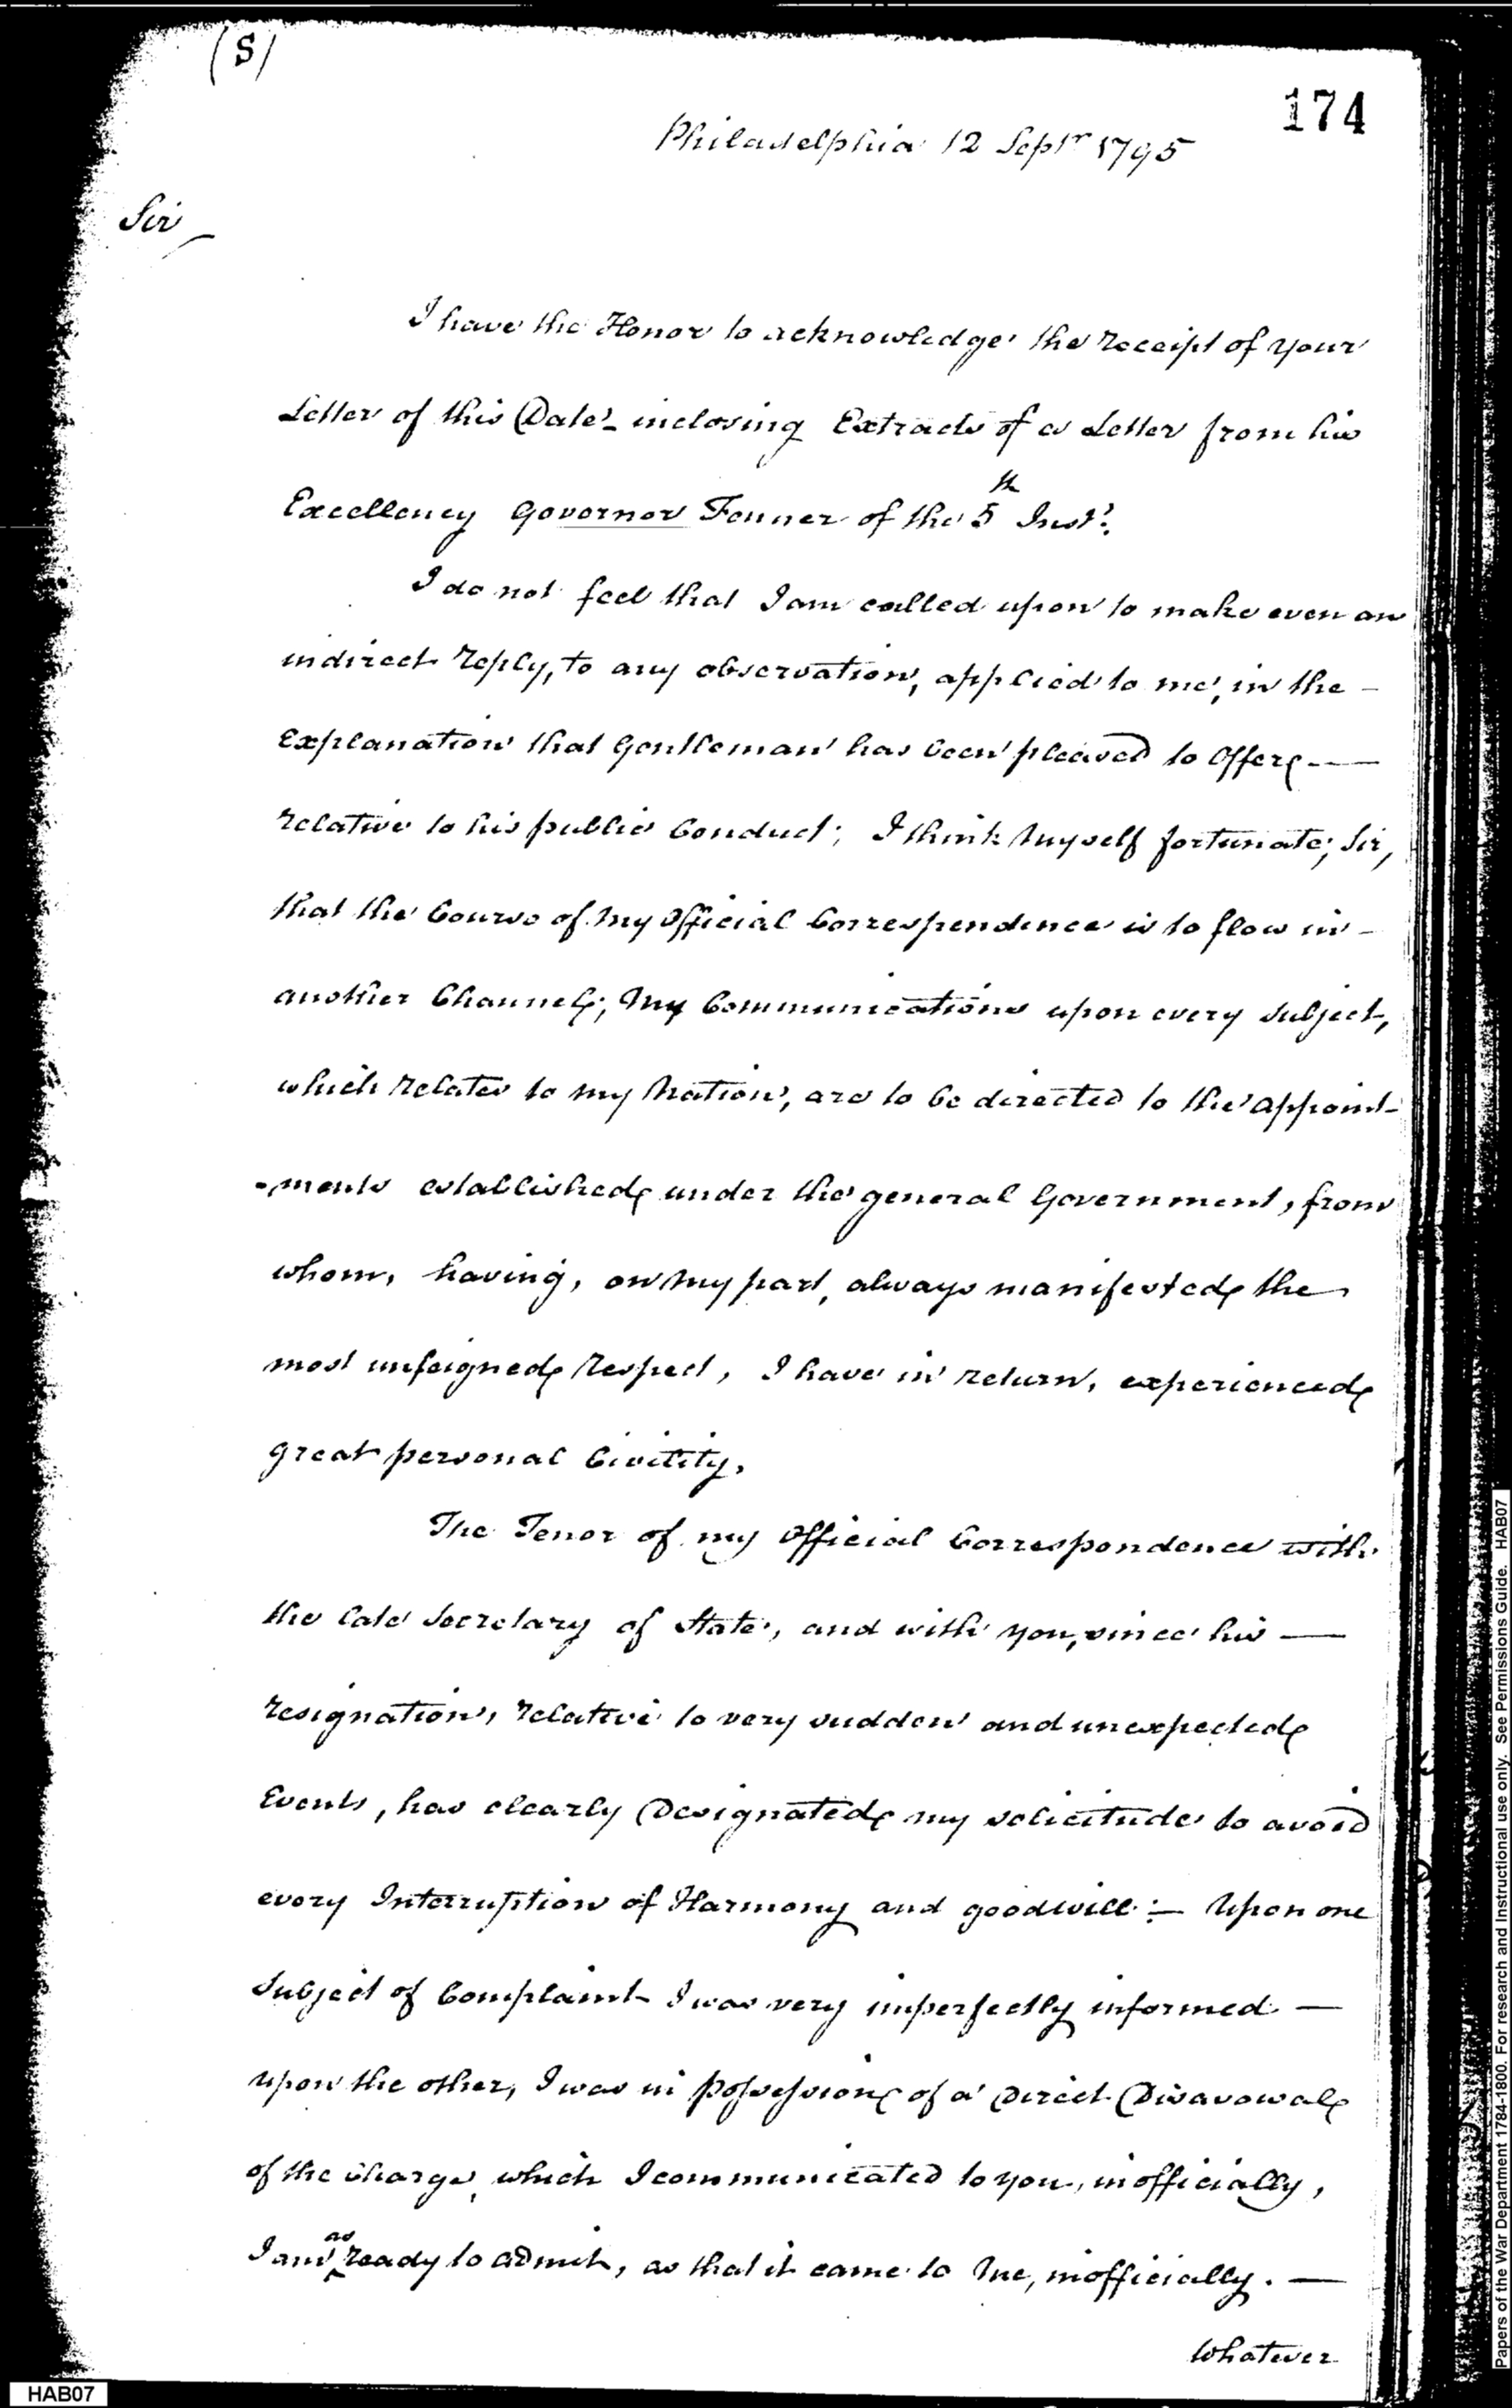 (S)
174
Philadelphia 12 Septr 1795
Sir
I have the Honor to acknowledge the receipt of your
Letter of this Date inclosing Extracts of a Letter from his
Excellency Governor Fenner of the 5th Inst.
I do not feel that I am called upon to make even an
indirect reply, to any observation, applied to me, in the –
explanation that Gentleman has been pleased to offer ——
relative to his public Conduct; I think myself fortunate, Sir,
that the Course of my Official Correspondence is to flow in –
another Channel; my Communications upon every subject,
which relates to my Nation, are to be directed to the appoint-
-ments established under the general Government, from
whom, having, on my part, always manifested the
most unfeigned respect, I have in return, experienced
great personal Civility,
The Tenor of my Official Correspondence with
the late Secretary of State, and with you, since his —
resignation, relative to very sudden and unexpected
Events, has clearly Designated my solicitude to avoid
every Interruption of Harmony and goodwill :— Upon one
Subject of Complaint I was very imperfectly informed —
upon the other, I was in possession of a Direct Disavowal
of the charge, which I communicated to you, inofficially,
I am as ready to admit, as that it came to me, inofficially. —
Whatever
HAB07
Papers of the War Department 1784-1800. For research and Instructional use only. See Permissions Guide. HAB07